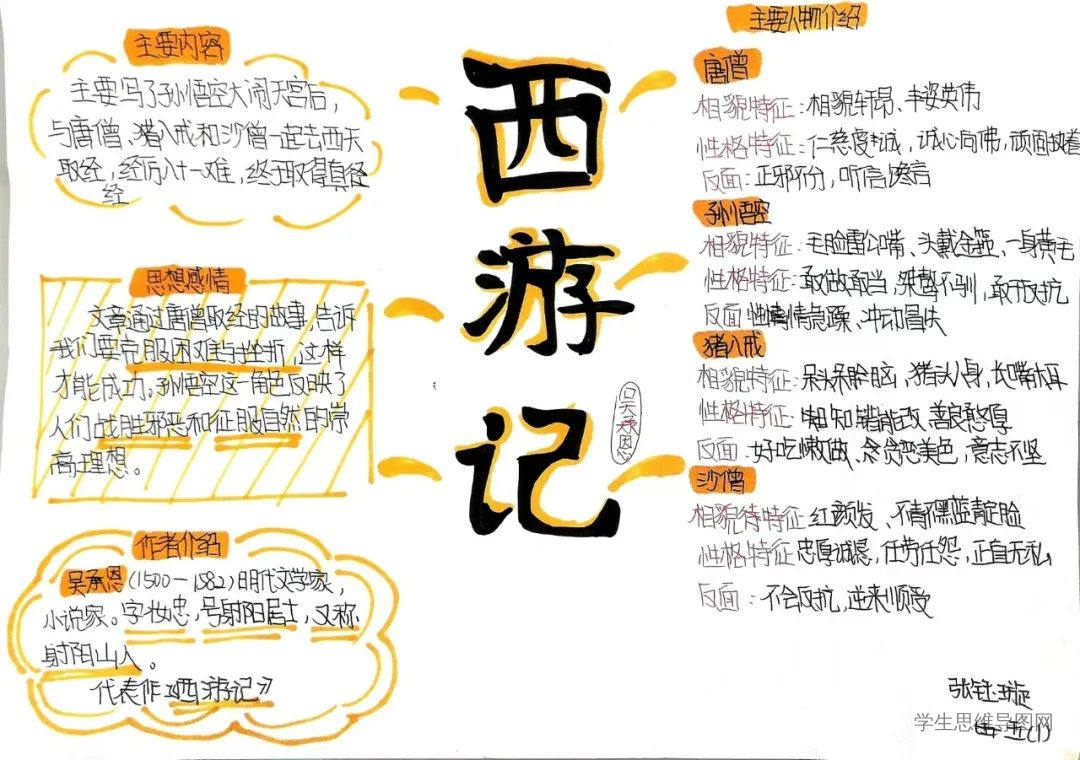 主要内容
主要写了孙悟空大闹天宫后，
与唐僧、猪八戒和沙僧一起去西天
取经，经历八十一难，终于取得真径
经
思想感情
文章通过唐僧取经的故事，告诉
我们要克服困难与挫折，这样
才能成功。孙悟空这一角色反映了
人们战胜邪恶和征服自然的崇
高理想。
作者介绍
吴承恩(1500一1582)明代文学家，
小说家。字妆忠，号射阳居士，又称
射阳山人。
代表作《西游记》
西
游
记
吴承恩
主要人物介绍
唐僧
相貌特征：相貌轩昂、丰姿英伟
性格特征：仁慈虔诚，诚心向佛，顽固执着
反面：正邪不分，听信谗言
孙悟空
相貌特征：毛脸雷公嘴、头戴金箍、一身黄毛
性格特征：敢做敢当，桀骜不驯，敢于反抗
反面：性情急躁、冲动冒失
猪八戒
相貌特征：呆头呆脑，猪头人身，长嘴大耳
性格特征：知错能改，善良憨厚
反面：好吃懒做、贪恋美色，意志不坚
沙僧
相貌特征 红颜发、不青不黑蓝靛脸
性格特征 忠厚诚恳，任劳任怨，正直无私
反面：不会反抗，逆来顺受
张钰璇
学生思维导图网
五(1)